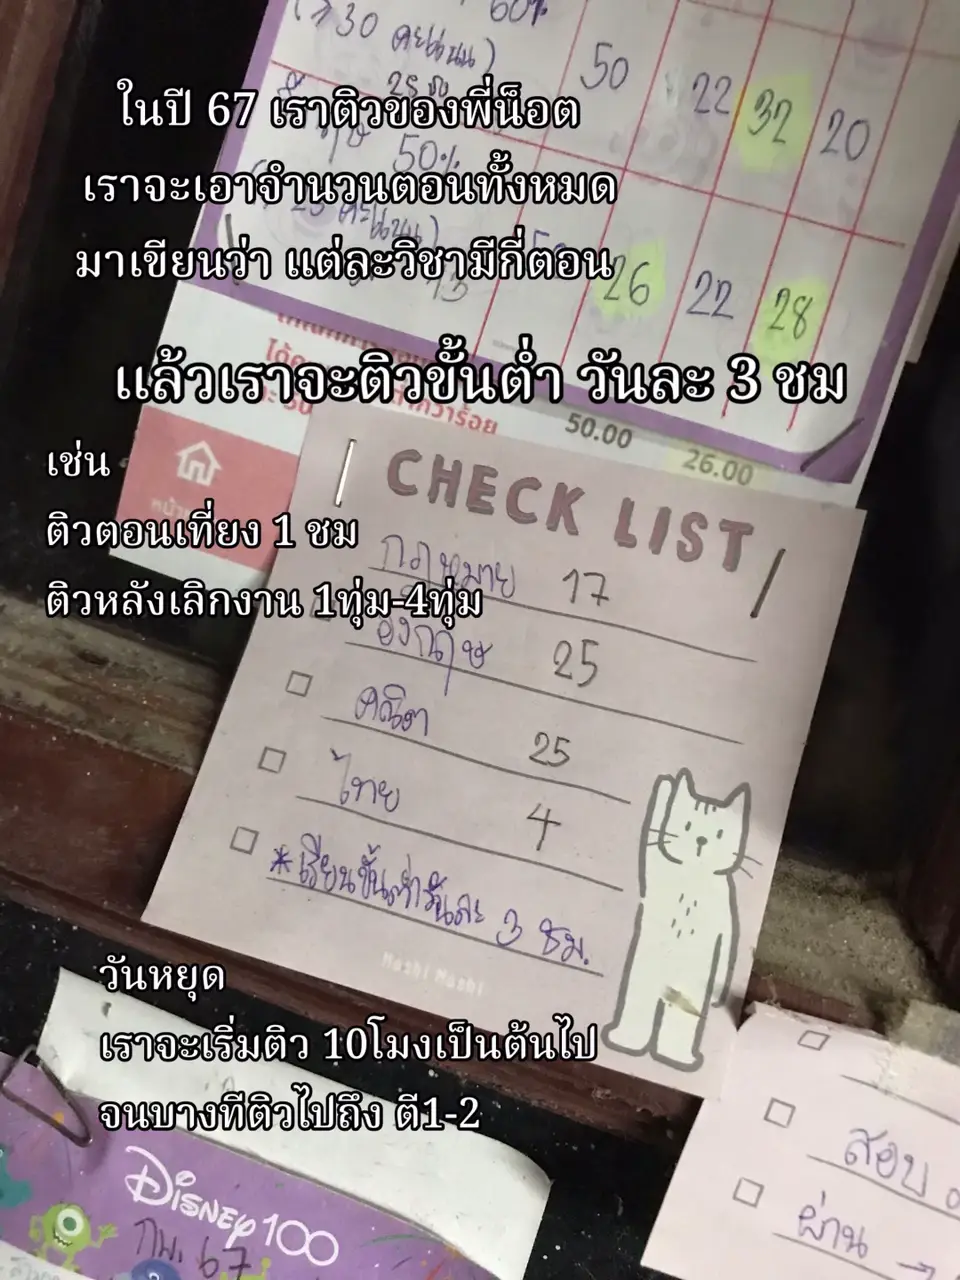 (≥30 คะแนน)
60%
50
22
32
20
25 ข้อ
50%
26
22
28
ในปี 67 เราติวของพี่น็อต
เราจะเอาจำนวนตอนทั้งหมด
มาเขียนว่า แต่ละวิชามีกี่ตอน
แล้วเราจะติวขั้นต่ำ วันละ 3 ชม
50.00
26.00
เช่น
ติวตอนเที่ยง 1 ชม
ติวหลังเลิกงาน 1ทุ่ม-4ทุ่ม
CHECK LIST
กฎหมาย 17
อังกฤษ 25
คณิต 25
ไทย 4
*เรียนขั้นต่ำวันละ 3 ชม.
Moshi Moshi
วันหยุด
เราจะเริ่มติว 10โมงเป็นต้นไป
จนบางทีติวไปถึง ตี1-2
สอบ
ผ่าน →
DISNEY 100
กพ. 67